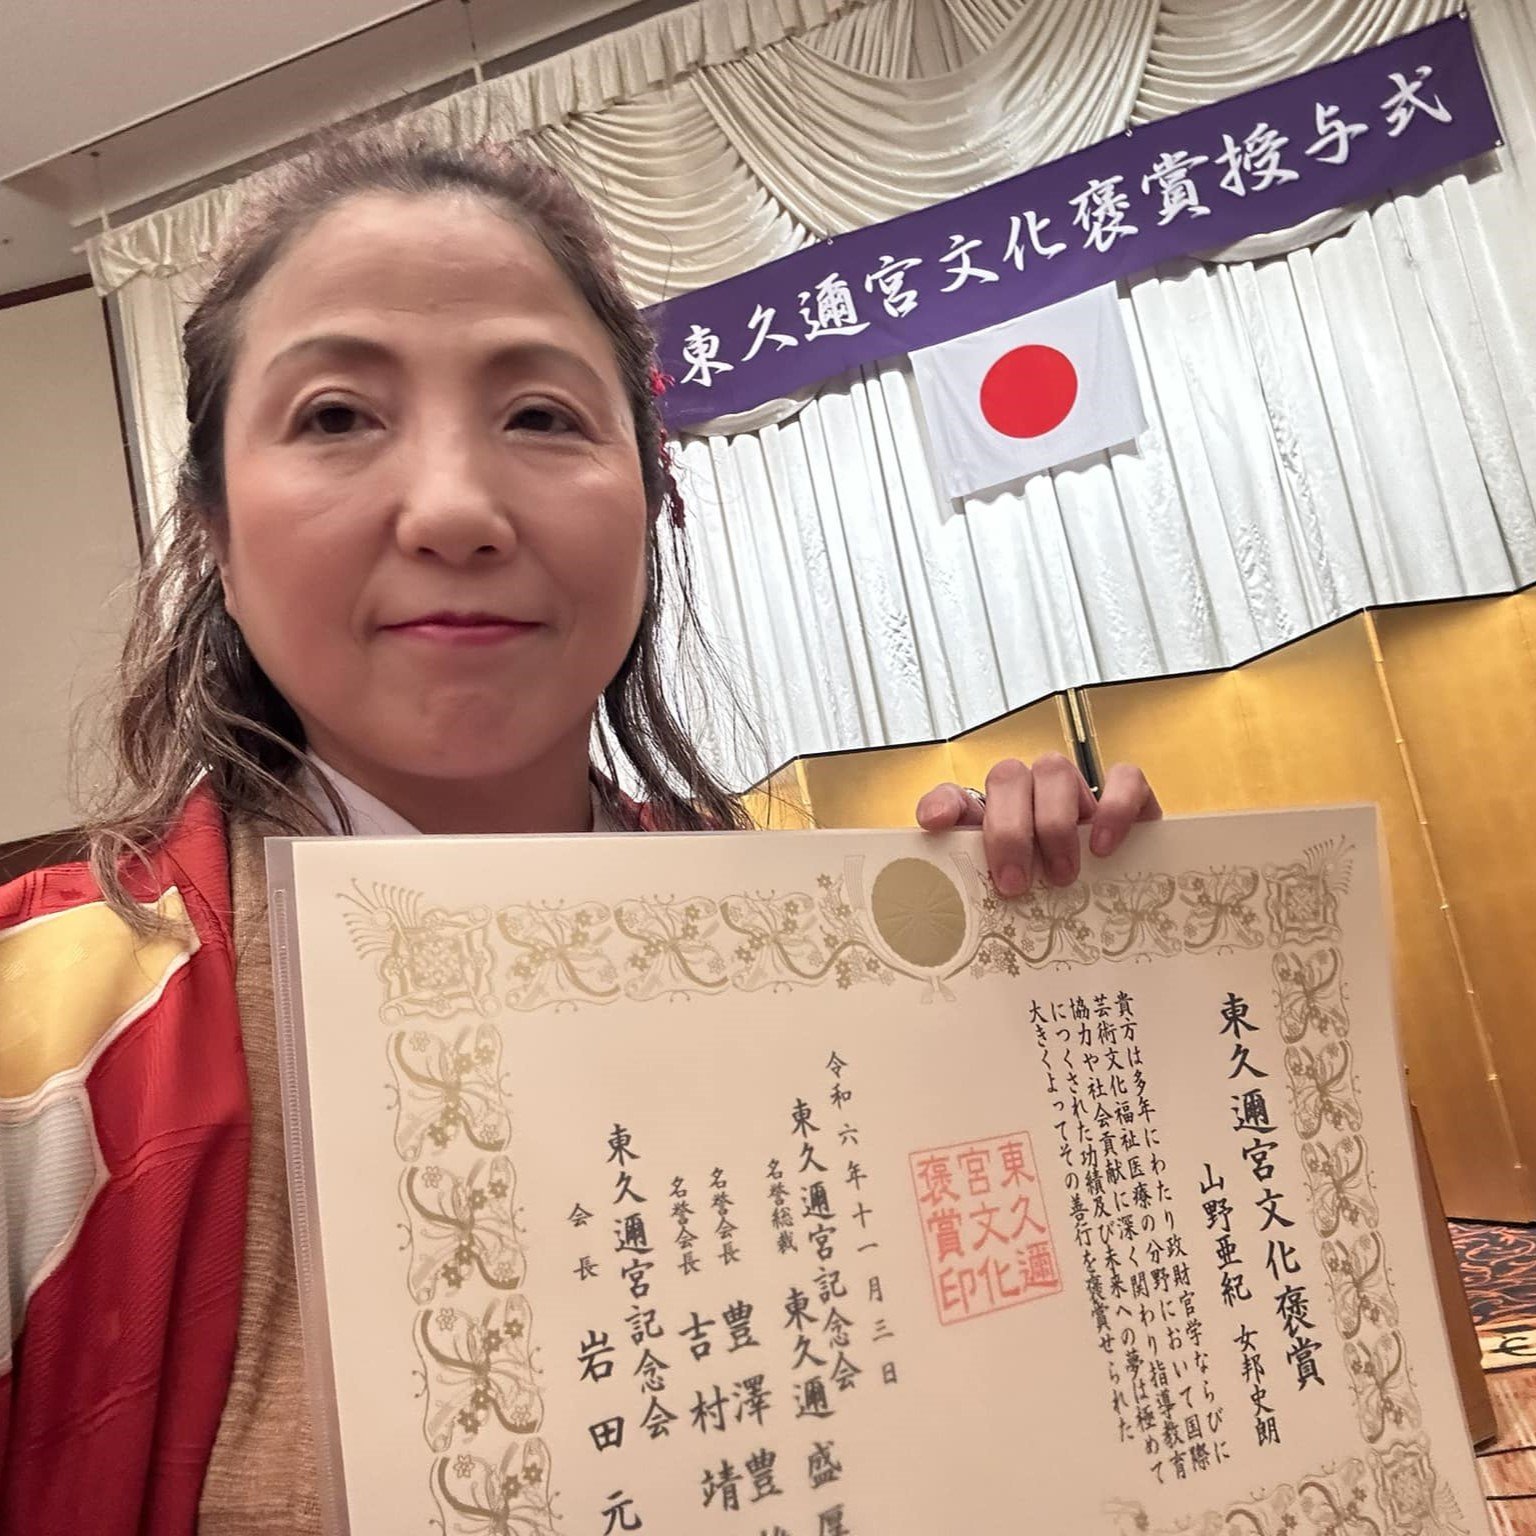 東久邇宮文化褒賞授与式
東久邇宮文化褒賞
山野亜紀 女邦史朗
貴方は多年にわたり政財官学ならびに
芸術文化福祉医療の分野において国際
協力や社会貢献に深く関わり指導教育
につくされた功績及び未来への夢は極めて
大きくよってその善行を褒賞せられた
東久邇
宮文化
褒賞印
令和六年十一月三日
東久邇宮記念会
名誉総裁 東久邇盛厚
名誉会長 豊澤豊
名誉会長 吉村靖
東久邇宮記念会
会長 岩田元